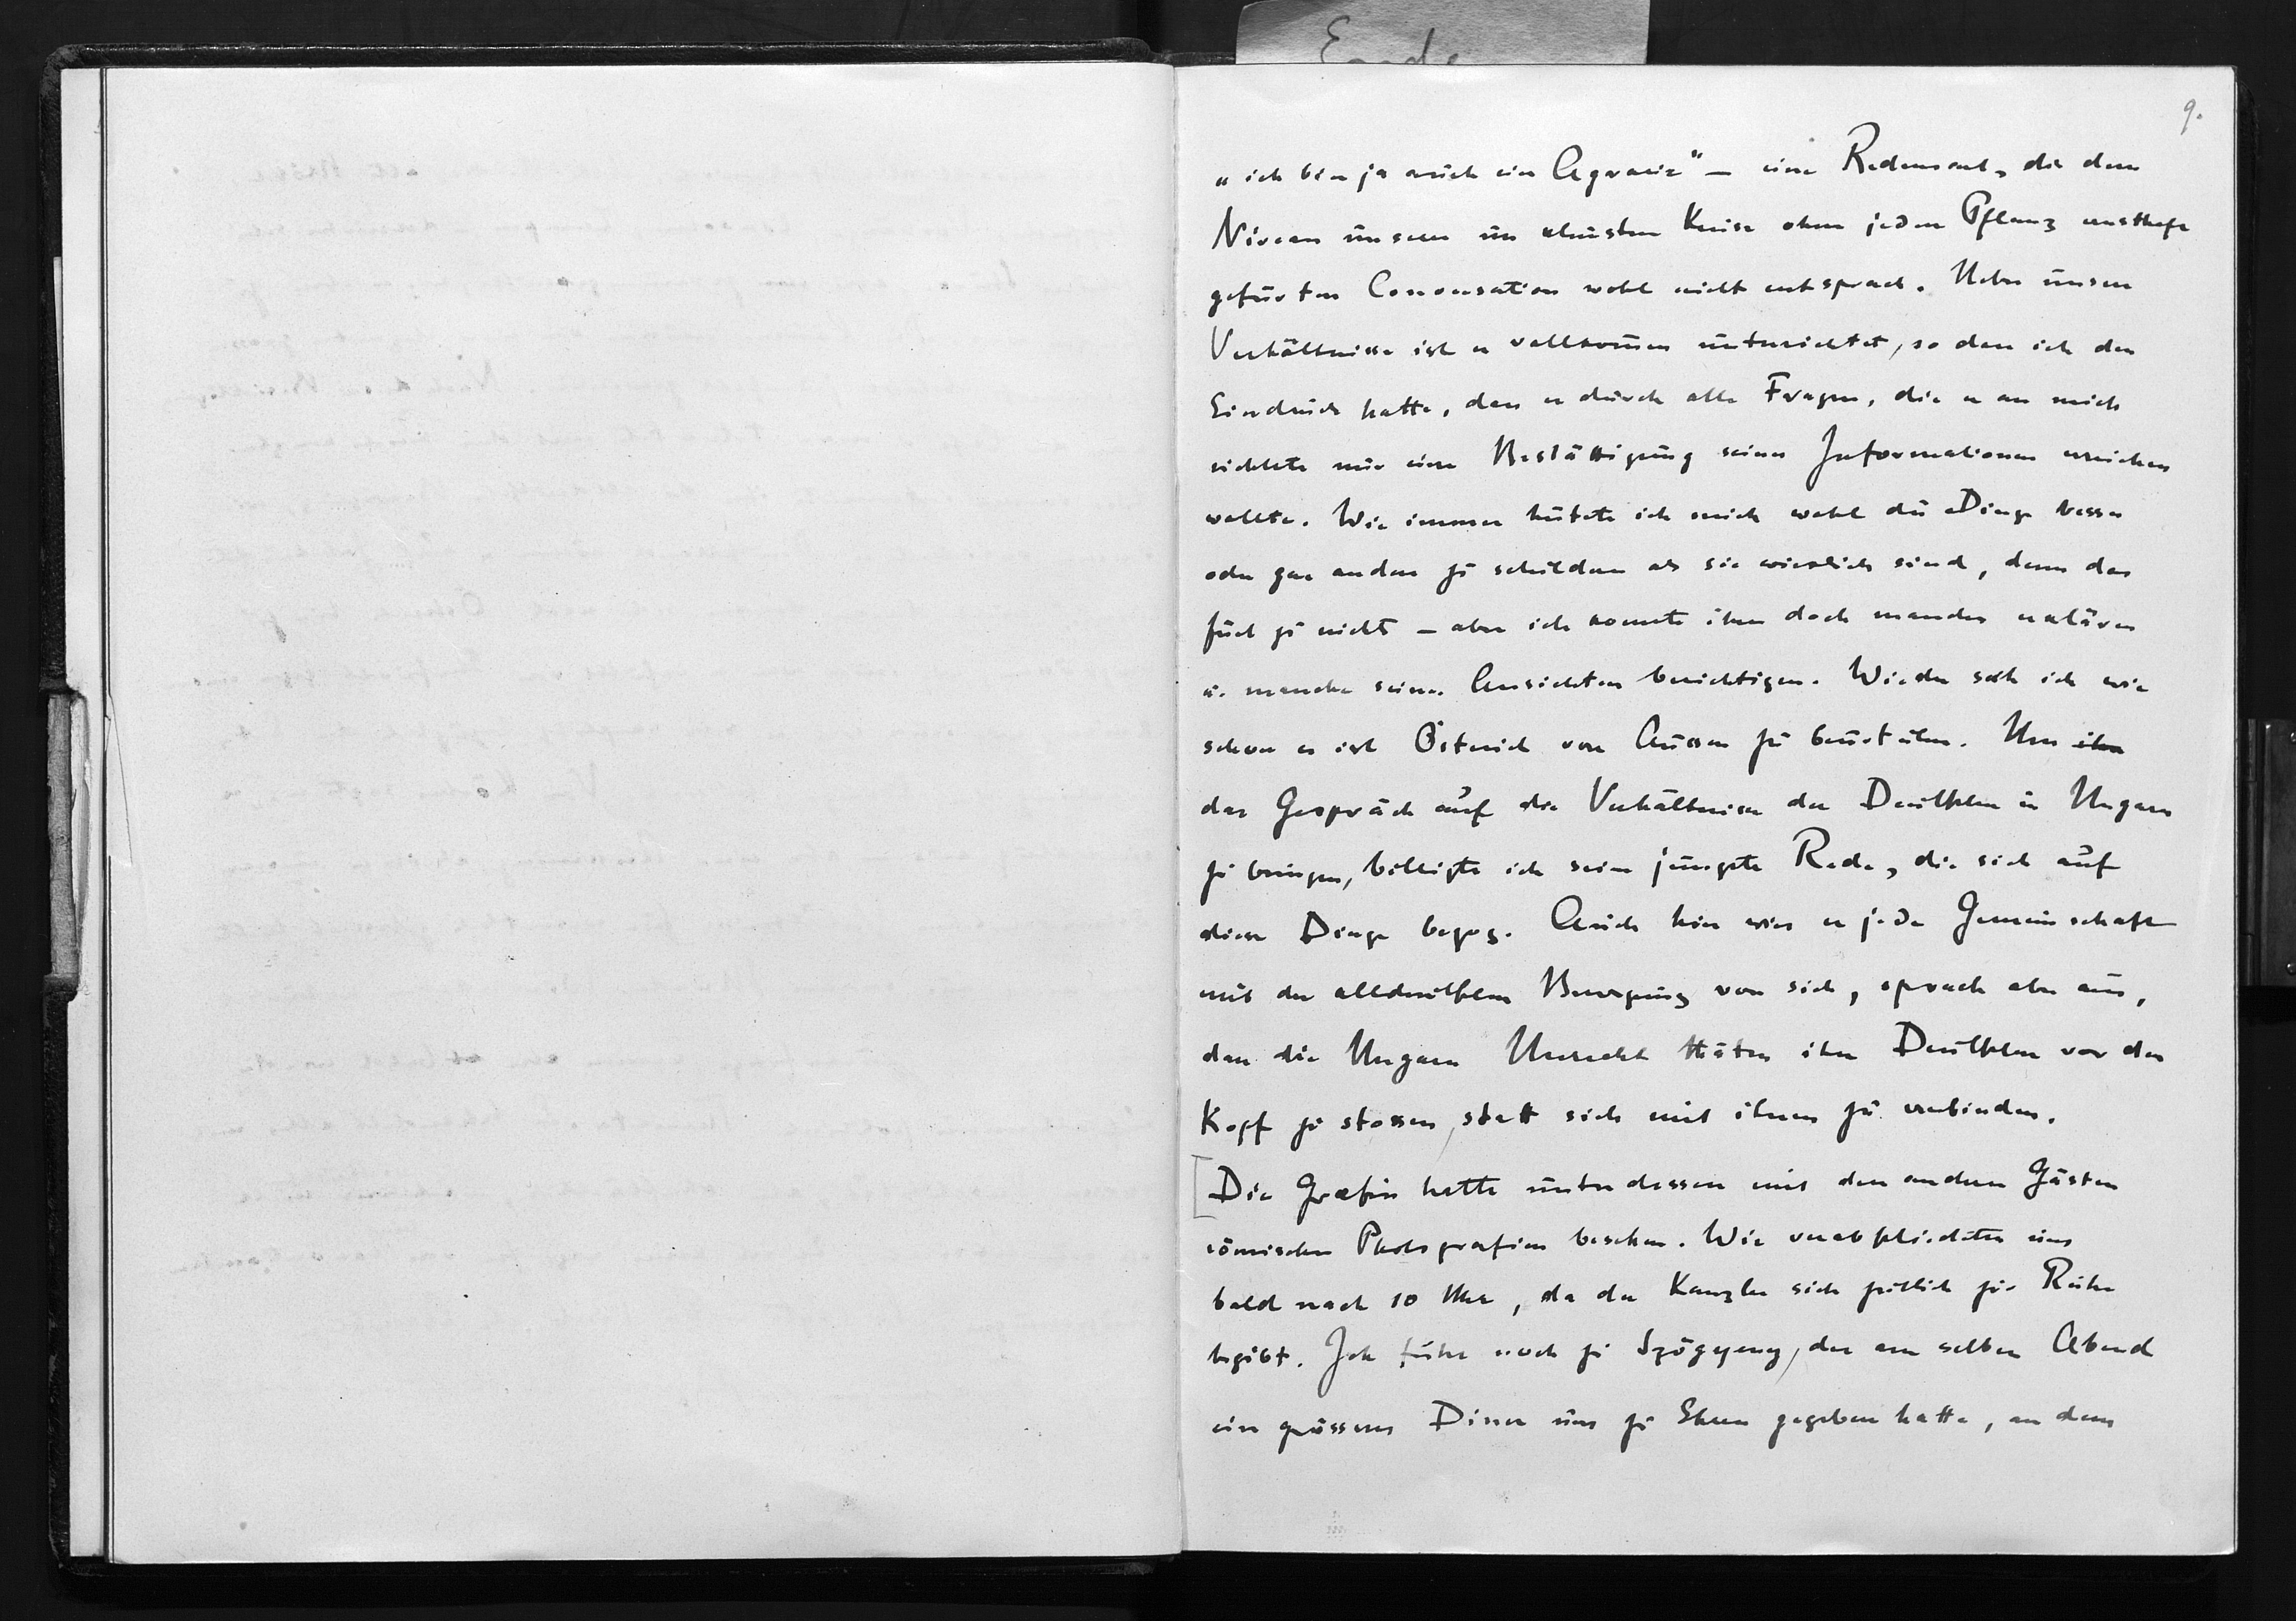 Ende
9.
„ich bin ja auch ein Agrarier" – eine Redensart, die dem
Niveau unserer im kleinsten Kreise ohne jeden Pflanz ernsthaft
gefürten Conversation wohl nicht entsprach. Ueber unsere
Verhältnisse ist er vollkommen unterrichtet, so dass ich den
Eindruck hatte, dass er durch alle Fragen, die er an mich
richtete nur eine Bestättigung seiner Informationen erreichen
wollte. Wie immer hütete ich mich wohl die Dinge besser
oder gar anders zu schildern als sie wirklich sind, denn das
fürt zu nichts – aber ich konnte ihm doch manches erklären
u. manche seiner Ansichten berichtigen. Wieder sah ich wie
schwer es ist Östreich von Aussen zu beurteilen. Um ihn
das Gespräch auf die Verhältnisse der Deutschen in Ungarn
zu bringen, billigte ich seine jüngste Rede, die sich auf
diese Dinge bezog. Auch hier wies er jede Gemeinschaft
mit der alldeutschen Bewegung von sich, sprach aber aus,
dass die Ungarn Unrecht thäten ihre Deutschen vor den
Kopf zu stossen, statt sich mit ihnen zu verbinden.
[Die Gräfin hatte unterdessen mit den andern Gästen
römischen Photografien besehen. Wir verabschiedeten uns
bald nach 10 Uhr, da der Kanzler sich zeitlich zur Ruhe
begibt. Ich fuhr noch zu Szögyeny, der am selben Abend
ein grösseres Diner uns zu Ehren gegeben hatte, an dem